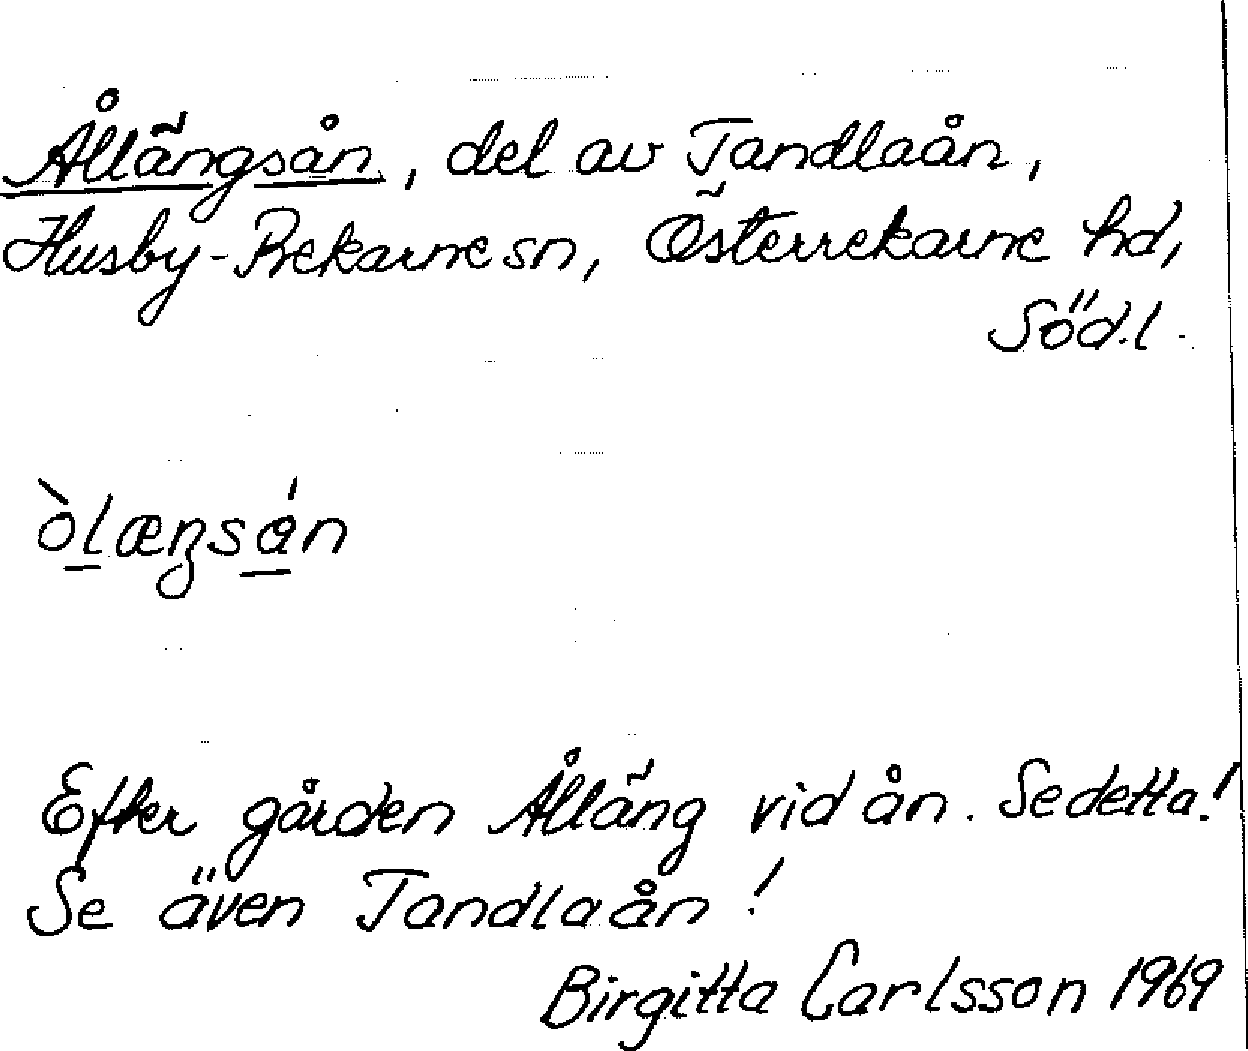 Ållängsån, del av Tandlaån,
Husby-Rekarne sn, Österrekarne hd,
Söd.l.
Efter gården Ålläng vid ån. Se detta!
Se även Tandlaån!
Birgitta Carlsson 1969